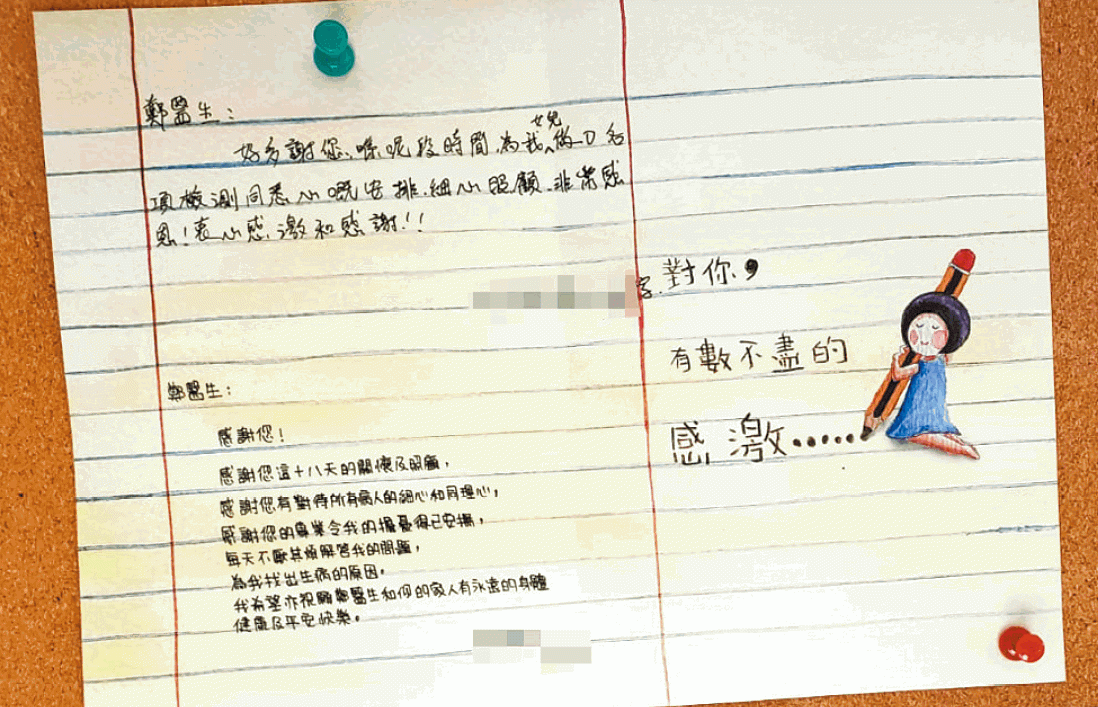 鄭醫生：
好多謝您、喺呢段時間、為我女兒做D各
項檢測同悉心嘅安排、細心照顧、非常感
恩！衷心感激和感謝！！
字.
鄭醫生：
感謝您！
感謝您這十八天的關懷及照顧，
感謝您有對待所有病人的細心和同理心，
感謝您的專業令我的擔憂得已安撫，
每天不厭其煩解答我的問題，
為我找出生病的原因。
我希望亦祝願鄭醫生和你的家人有永遠的身體
健康及平安快樂。
對你，
有數不盡的
感激……